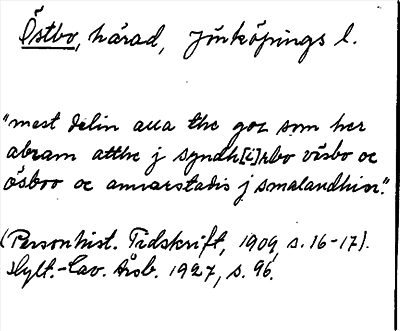 Östbo, härad, Jönköpings l.
"mest delin aua the goz som her
abram atthe j syndh[i]rbo väsbo oc
ösboo oc annarstadis j smalandhin."
(Personhist. Tidskrift, 1909, s. 16-17).
Hylt.-Cav. Årsb. 1927, s. 96.